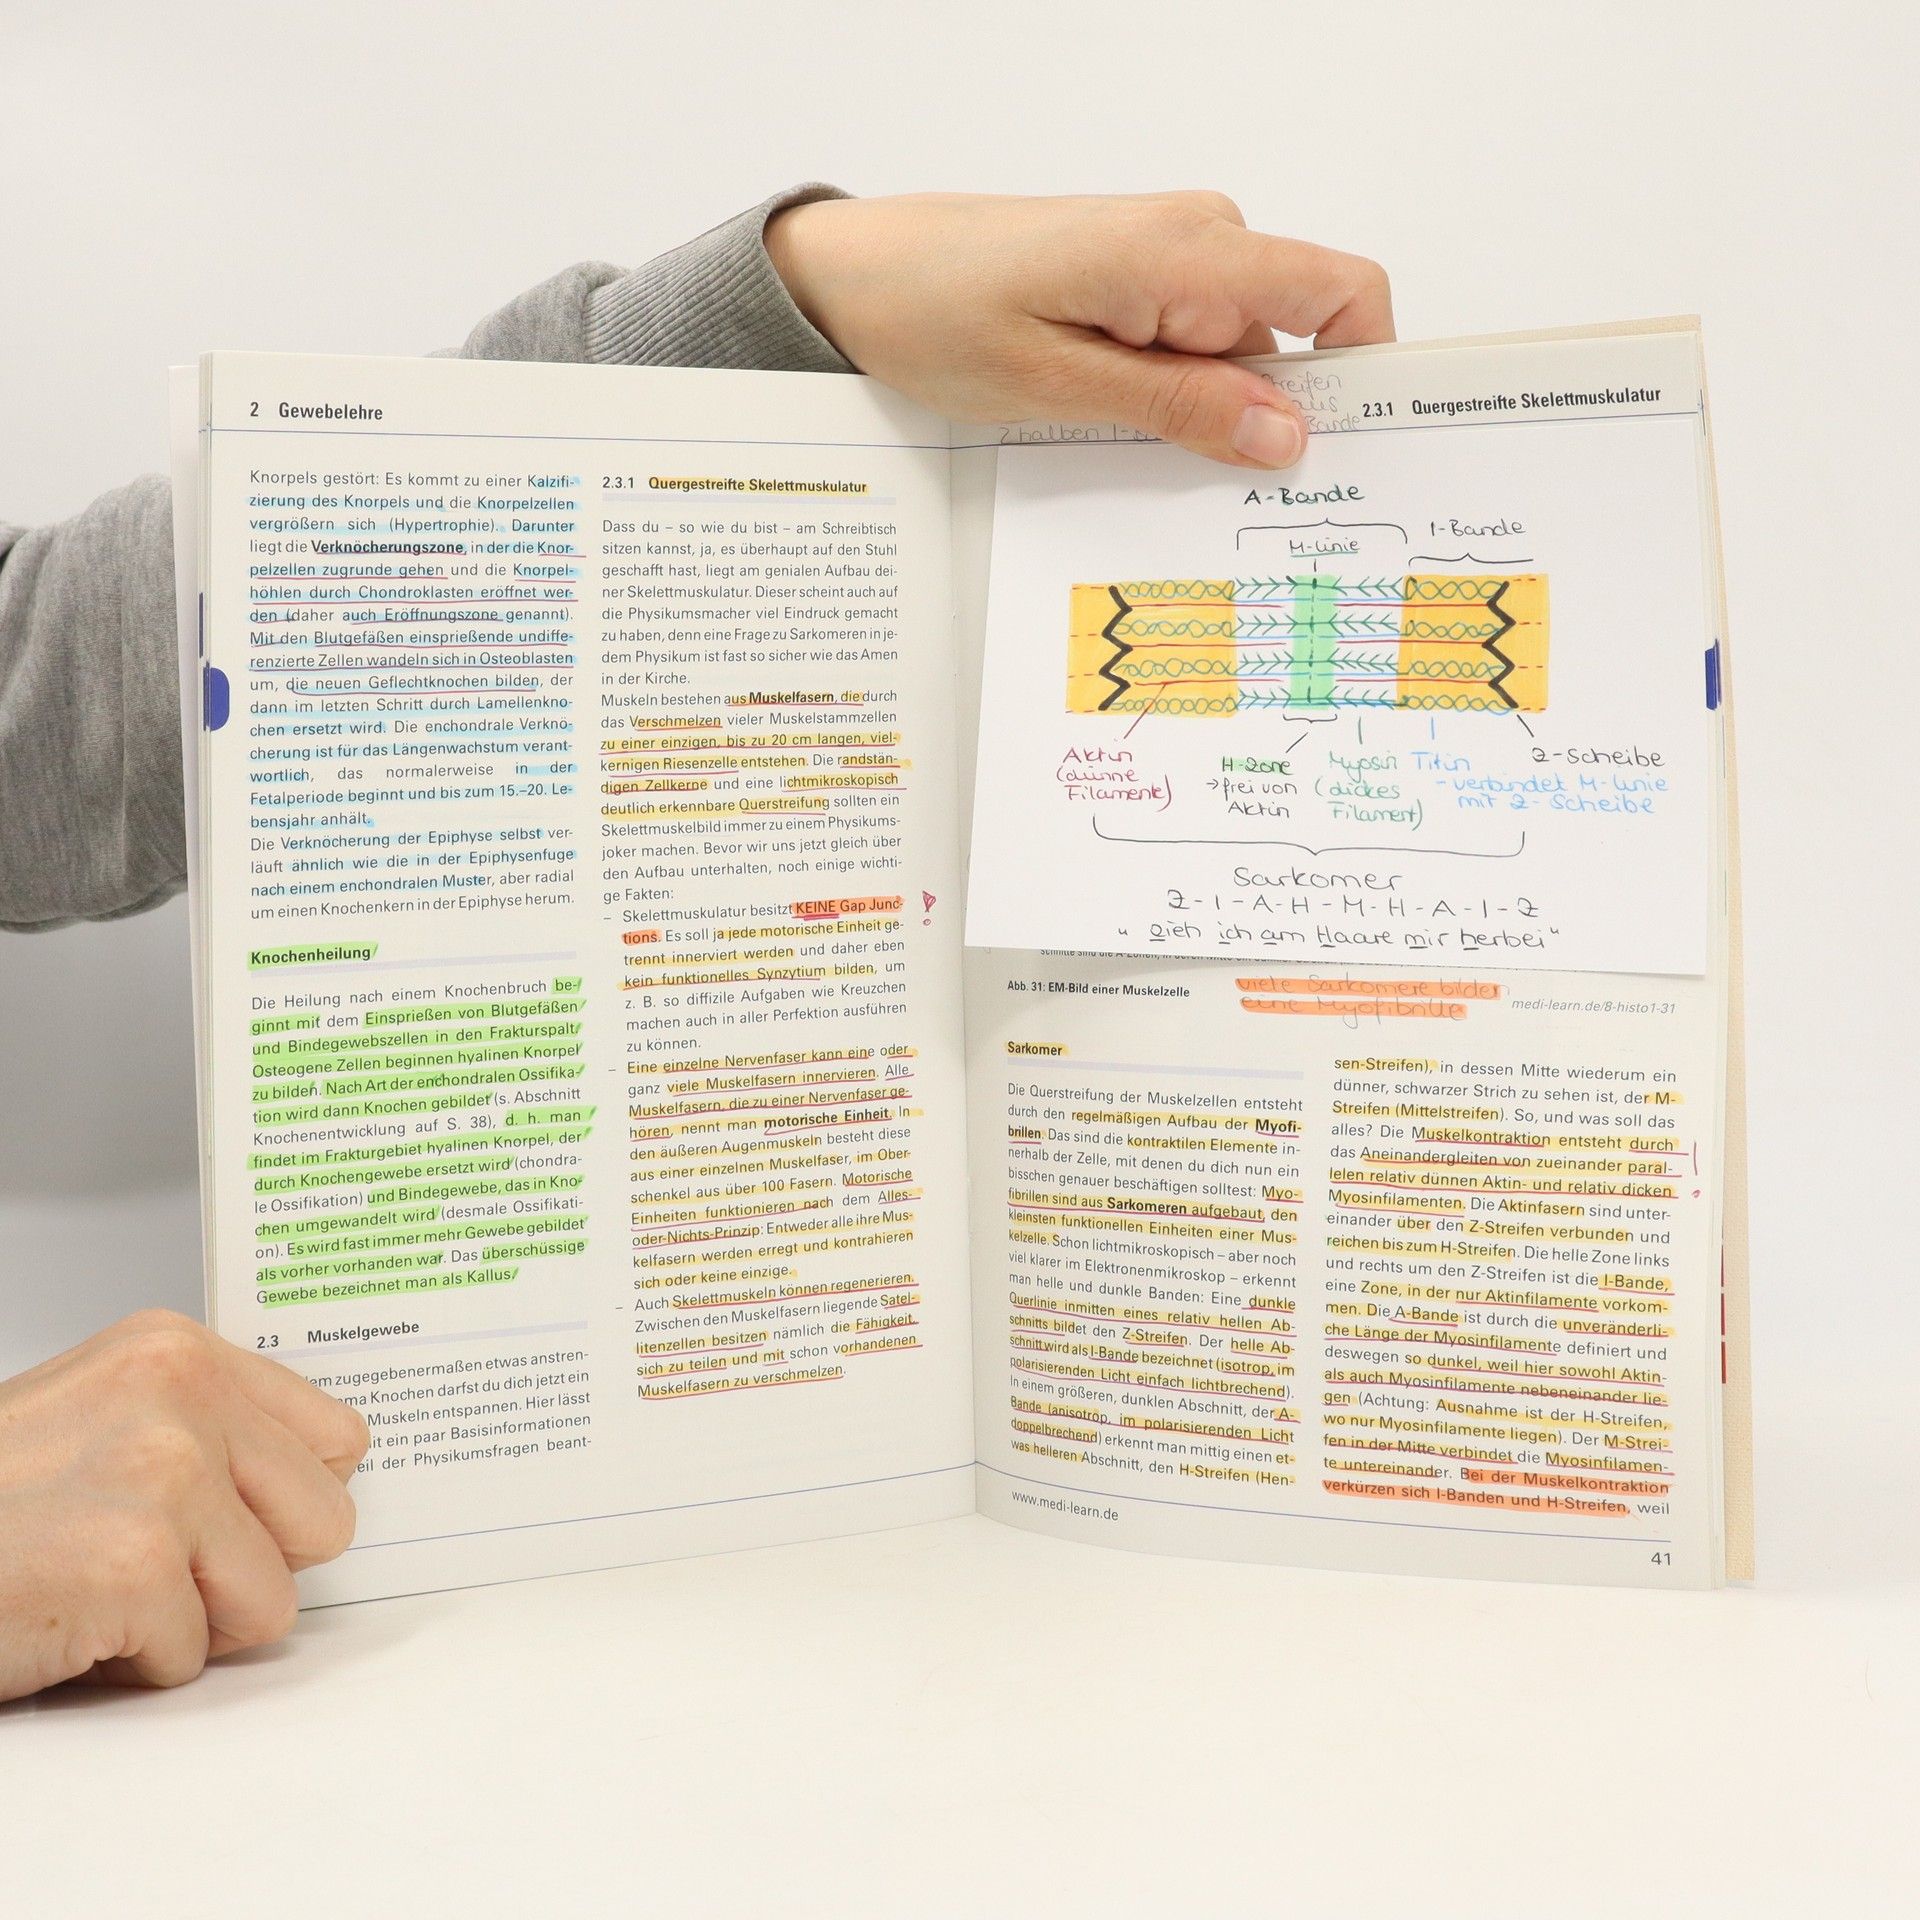 2 Gewebelehre
Knorpels gestört: Es kommt zu einer Kalzifi-
zierung des Knorpels und die Knorpelzellen
vergrößern sich (Hypertrophie). Darunter
liegt die Verknöcherungszone, in der die Knor-
pelzellen zugrunde gehen und die Knorpel-
höhlen durch Chondroklasten eröffnet wer-
den (daher auch Eröffnungszone genannt).
Mit den Blutgefäßen einsprießende undiffe-
renzierte Zellen wandeln sich in Osteoblasten
um, die neuen Geflechtknochen bilden, der
dann im letzten Schritt durch Lamellenkno-
chen ersetzt wird. Die enchondrale Verknö-
cherung ist für das Längenwachstum verant-
wortlich, das normalerweise in der
Fetalperiode beginnt und bis zum 15.–20. Le-
bensjahr anhält.
Die Verknöcherung der Epiphyse selbst ver-
läuft ähnlich wie die in der Epiphysenfuge
nach einem enchondralen Muster, aber radial
um einen Knochenkern in der Epiphyse herum.
Knochenheilung
Die Heilung nach einem Knochenbruch be-
ginnt mit dem Einsprießen von Blutgefäßen
und Bindegewebszellen in den Frakturspalt.
Osteogene Zellen beginnen hyalinen Knorpel
zu bilden. Nach Art der enchondralen Ossifika-
tion wird dann Knochen gebildet (s. Abschnitt
Knochenentwicklung auf S. 38), d. h. man
findet im Frakturgebiet hyalinen Knorpel, der
durch Knochengewebe ersetzt wird (chondra-
le Ossifikation) und Bindegewebe, das in Kno-
chen umgewandelt wird (desmale Ossifikati-
on). Es wird fast immer mehr Gewebe gebildet
als vorher vorhanden war. Das überschüssige
Gewebe bezeichnet man als Kallus.
2.3 Muskelgewebe
zugegebenermaßen etwas anstren-
Knochen darfst du dich jetzt ein
Muskeln entspannen. Hier lässt
ein paar Basisinformationen
der Physikumsfragen beant-
2.3.1 Quergestreifte Skelettmuskulatur
Dass du – so wie du bist – am Schreibtisch
sitzen kannst, ja, es überhaupt auf den Stuhl
geschafft hast, liegt am genialen Aufbau dei-
ner Skelettmuskulatur. Dieser scheint auch auf
die Physikumsmacher viel Eindruck gemacht
zu haben, denn eine Frage zu Sarkomeren in je-
dem Physikum ist fast so sicher wie das Amen
in der Kirche.
Muskeln bestehen aus Muskelfasern, die durch
das Verschmelzen vieler Muskelstammzellen
zu einer einzigen, bis zu 20 cm langen, viel-
kernigen Riesenzelle entstehen. Die randstän-
digen Zellkerne und eine lichtmikroskopisch
deutlich erkennbare Querstreifung sollten ein
Skelettmuskelbild immer zu einem Physikums-
joker machen. Bevor wir uns jetzt gleich über
den Aufbau unterhalten, noch einige wichti-
ge Fakten:
– Skelettmuskulatur besitzt KEINE Gap Junc- !
tions. Es soll ja jede motorische Einheit ge-
trennt innerviert werden und daher eben
kein funktionelles Synzytium bilden, um
z. B. so diffizile Aufgaben wie Kreuzchen
machen auch in aller Perfektion ausführen
zu können.
– Eine einzelne Nervenfaser kann eine oder
ganz viele Muskelfasern innervieren. Alle
Muskelfasern, die zu einer Nervenfaser ge-
hören, nennt man motorische Einheit. In
den äußeren Augenmuskeln besteht diese
aus einer einzelnen Muskelfaser, im Ober-
schenkel aus über 100 Fasern. Motorische
Einheiten funktionieren nach dem Alles-
oder-Nichts-Prinzip: Entweder alle ihre Mus-
kelfasern werden erregt und kontrahieren
sich oder keine einzige.
– Auch Skelettmuskeln können regenerieren.
Zwischen den Muskelfasern liegende Satel-
litenzellen besitzen nämlich die Fähigkeit,
sich zu teilen und mit schon vorhandenen
Muskelfasern zu verschmelzen.
2.3.1 Quergestreifte Skelettmuskulatur
Streifen
aus
2 halben I- Bande
A-Bande
I-Bande
M-Linie
Aktin
(dünne
Filamente)
H-Zone
→ frei von
Aktin
Myosin
(dickes
Filament)
Titin
- verbindet M-Linie
mit Z-Scheibe
Z-Scheibe
Sarkomer
Z-I-A-H-M-H-A-I-Z
"Zieh ich am Haare mir herbei"
Abb. 31: EM-Bild einer Muskelzelle
viele Sarkomere bilden
eine Myofibrille
medi-learn.de/8-histo1-31
Sarkomer
Die Querstreifung der Muskelzellen entsteht
durch den regelmäßigen Aufbau der Myofi-
brillen. Das sind die kontraktilen Elemente in-
nerhalb der Zelle, mit denen du dich nun ein
bisschen genauer beschäftigen solltest: Myo-
fibrillen sind aus Sarkomeren aufgebaut, den
kleinsten funktionellen Einheiten einer Mus-
kelzelle. Schon lichtmikroskopisch – aber noch
viel klarer im Elektronenmikroskop – erkennt
man helle und dunkle Banden: Eine dunkle
Querlinie inmitten eines relativ hellen Ab-
schnitts bildet den Z-Streifen. Der helle Ab-
schnitt wird als I-Bande bezeichnet (isotrop, im
polarisierenden Licht einfach lichtbrechend).
In einem größeren, dunklen Abschnitt, der A-
Bande (anisotrop, im polarisierenden Licht
doppelbrechend) erkennt man mittig einen et-
was helleren Abschnitt, den H-Streifen (Hen-
sen-Streifen), in dessen Mitte wiederum ein
dünner, schwarzer Strich zu sehen ist, der M-
Streifen (Mittelstreifen). So, und was soll das
alles? Die Muskelkontraktion entsteht durch
das Aneinandergleiten von zueinander paral-
lelen relativ dünnen Aktin- und relativ dicken
Myosinfilamenten. Die Aktinfasern sind unter-
einander über den Z-Streifen verbunden und
reichen bis zum H-Streifen. Die helle Zone links
und rechts um den Z-Streifen ist die I-Bande,
eine Zone, in der nur Aktinfilamente vorkom-
men. Die A-Bande ist durch die unveränderli-
che Länge der Myosinfilamente definiert und
deswegen so dunkel, weil hier sowohl Aktin-
als auch Myosinfilamente nebeneinander lie-
gen (Achtung: Ausnahme ist der H-Streifen,
wo nur Myosinfilamente liegen). Der M-Strei-
fen in der Mitte verbindet die Myosinfilamen-
te untereinander. Bei der Muskelkontraktion
verkürzen sich I-Banden und H-Streifen, weil
www.medi-learn.de
41